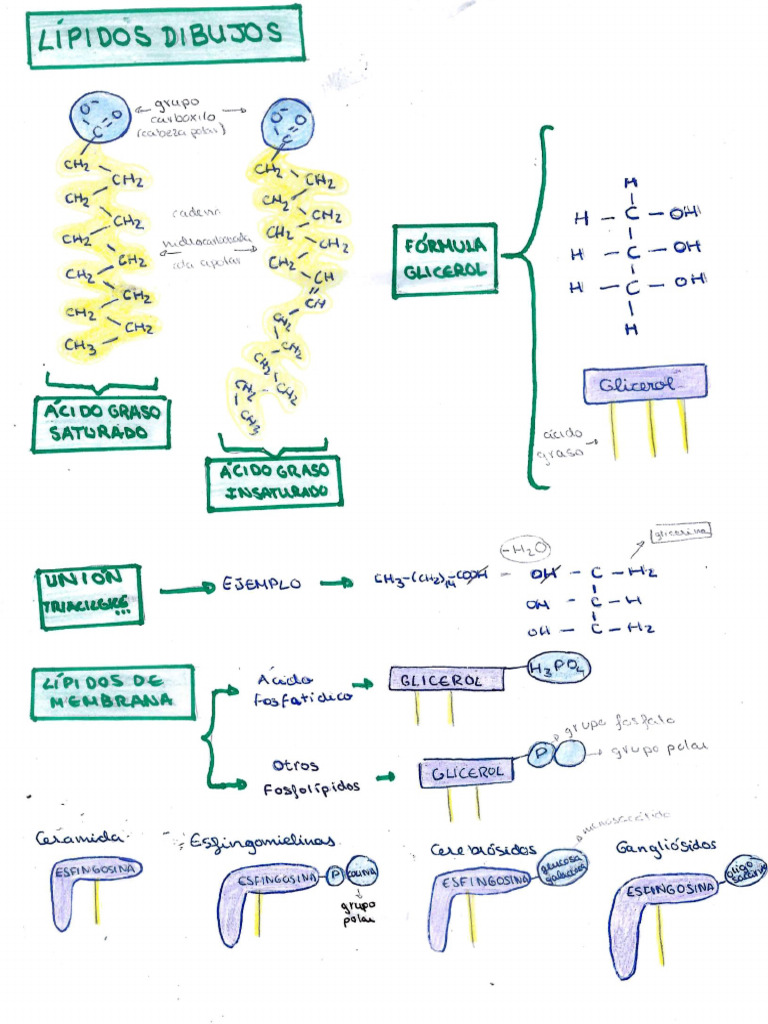 LÍPIDOS DIBUJOS
O⁻ O
C
grupo
carboxilo
(cabeza polar)
O⁻ O
C
CH2
CH2
CH2
CH2
CH2
CH2
CH2
CH2
CH2
CH3
cadena
hidrocarbonada
cola apolar
CH2
CH2
CH2
CH2
CH2
CH2
CH2
CH
CH
CH2
CH2
CH2
CH2
CH2
CH3
ÁCIDO GRASO
SATURADO
ÁCIDO GRASO
INSATURADO
FÓRMULA
GLICEROL
H
H – C – OH
H – C – OH
H – C – OH
H
Glicerol
ácido
graso
UNIÓN
EJEMPLO
CH3–(CH2)14–COOH
-H2O
glicerina
OH – C – H2
OH – C – H
OH – C – H2
LÍPIDOS DE
MEMBRANA
Ácido
fosfatídico
GLICEROL
H3PO4
Otros
Fosfolípidos
GLICEROL
P
grupo fosfato
grupo polar
Ceramida
ESFINGOSINA
Esfingomielinas
ESFINGOSINA
P
COLINA
grupo
polar
Cerebrósidos
monosacárido
ESFINGOSINA
glucosa
galactosa
Gangliósidos
ESFINGOSINA